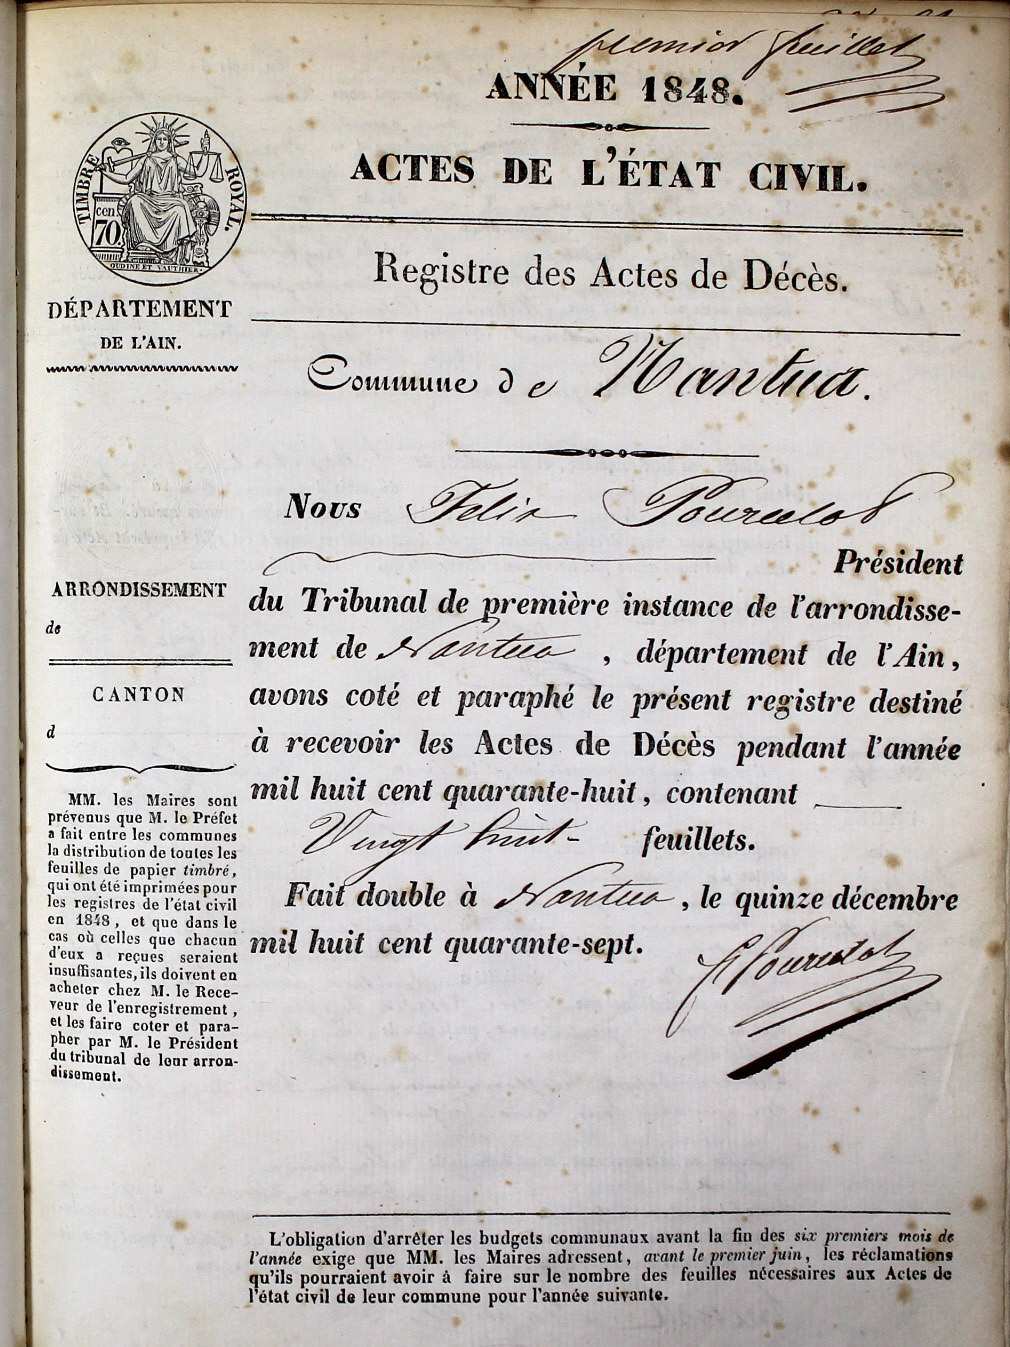 premier feuillet
ANNÉE 1848.
ACTES DE L'ÉTAT CIVIL.
TIMBRE ROYAL.
cen
70.
OUDINE ET VAUTHIER.
Registre des Actes de Décès.
DÉPARTEMENT
DE L'AIN.
Commune de Nantua.
Nous Felix Pourcelot
Président
ARRONDISSEMENT
de
CANTON
d
du Tribunal de première instance de l'arrondisse-
ment de Nantua, département de l'Ain,
avons coté et paraphé le présent registre destiné
à recevoir les Actes de Décès pendant l'année
mil huit cent quarante-huit, contenant
Vingt huit - feuillets.
Fait double à Nantua, le quinze décembre
mil huit cent quarante-sept.
F Pourcelot
MM. les Maires sont
prévenus que M. le Préfet
a fait entre les communes
la distribution de toutes les
feuilles de papier timbré,
qui ont été imprimées pour
les registres de l'état civil
en 1848, et que dans le
cas où celles que chacun
d'eux a reçues seraient
insuffisantes, ils doivent en
acheter chez M. le Rece-
veur de l'enregistrement,
et les faire coter et para-
pher par M. le Président
du tribunal de leur arron-
dissement.
L'obligation d'arrêter les budgets communaux avant la fin des six premiers mois de
l'année exige que MM. les Maires adressent, avant le premier juin, les réclamations
qu'ils pourraient avoir à faire sur le nombre des feuilles nécessaires aux Actes de
l'état civil de leur commune pour l'année suivante.